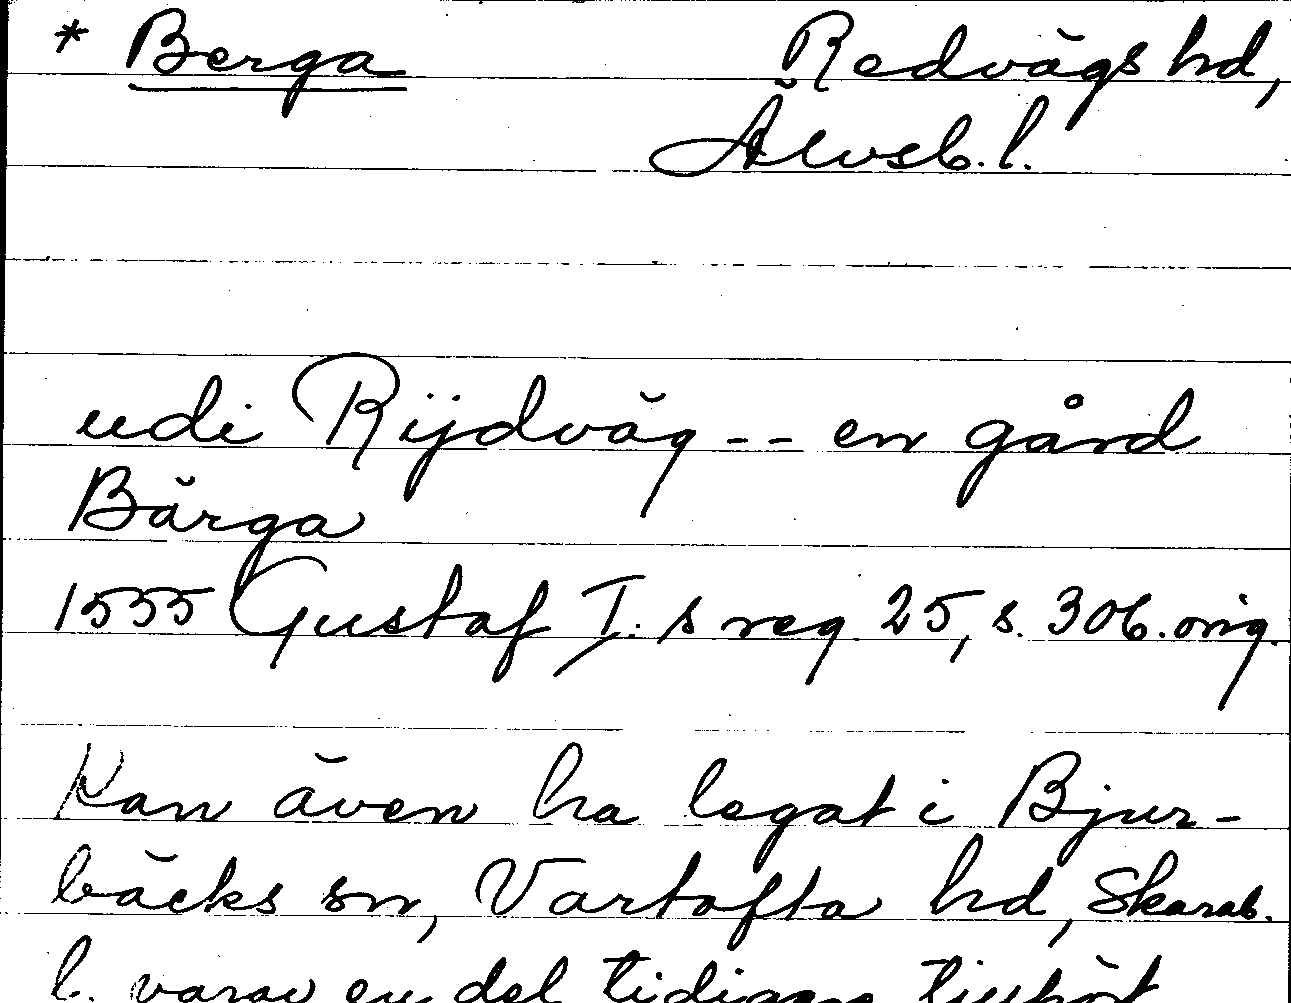 * Berga Redvägs hd,
Älvsb. l.
udi Rijdväg -- en gård
Bärga
1555 Gustaf I:s reg. 25, s. 306. orig.
Kan även ha legat i Bjur-
bäcks sn, Vartofta hd, Skarab.
l. varav en del tidigare tillhört